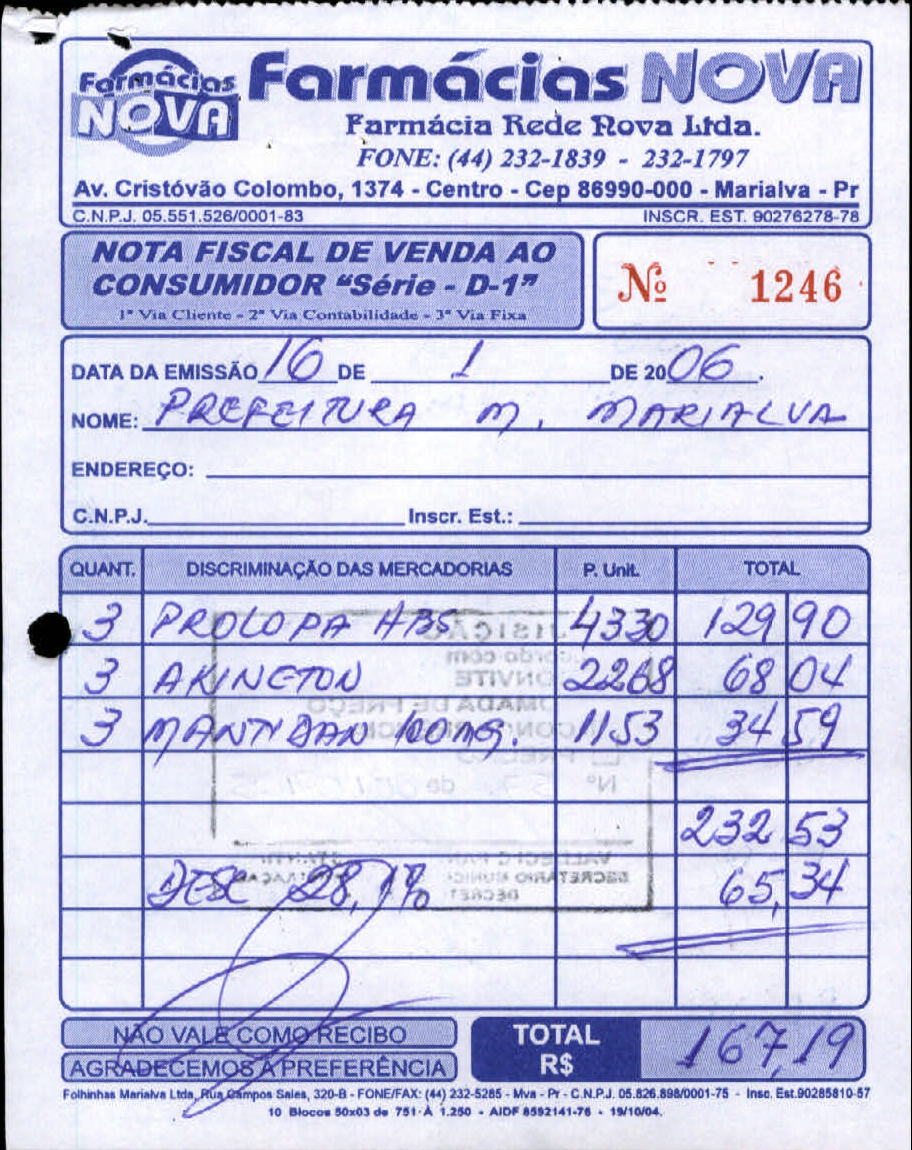 Farmácias NOVA
Farmácias NOVA
Farmácia Rede Nova Ltda.
FONE: (44) 232-1839 - 232-1797
Av. Cristóvão Colombo, 1374 - Centro - Cep 86990-000 - Marialva - Pr
C.N.P.J. 05.551.526/0001-83 INSCR. EST. 90276278-78
NOTA FISCAL DE VENDA AO
CONSUMIDOR "Série - D-1"
1ª Via Cliente - 2ª Via Contabilidade - 3ª Via Fixa
Nº 1246
DATA DA EMISSÃO 16 DE 1 DE 2006.
NOME: PREFEITURA M. MARIALVA
ENDEREÇO:
C.N.P.J. Inscr. Est.:
QUANT. DISCRIMINAÇÃO DAS MERCADORIAS P. Unit. TOTAL
3 PROLOPA HBS 4330 129 90
3 AKINETON 2268 68 04
3 MANTIDAN 100mg. 1153 34 59
232 53
DESC 28,1% 65,34
NÃO VALE COMO RECIBO
AGRADECEMOS A PREFERÊNCIA
TOTAL R$ 167,19
Folhinhas Marialva Ltda, Rua Campos Sales, 320-B - FONE/FAX: (44) 232-5285 - Mva - Pr - C.N.P.J. 05.826.898/0001-75 - Insc. Est.90285810-57
10 Blocos 50x03 de 751 À 1.250 - AIDF 8592141-76 - 19/10/04.